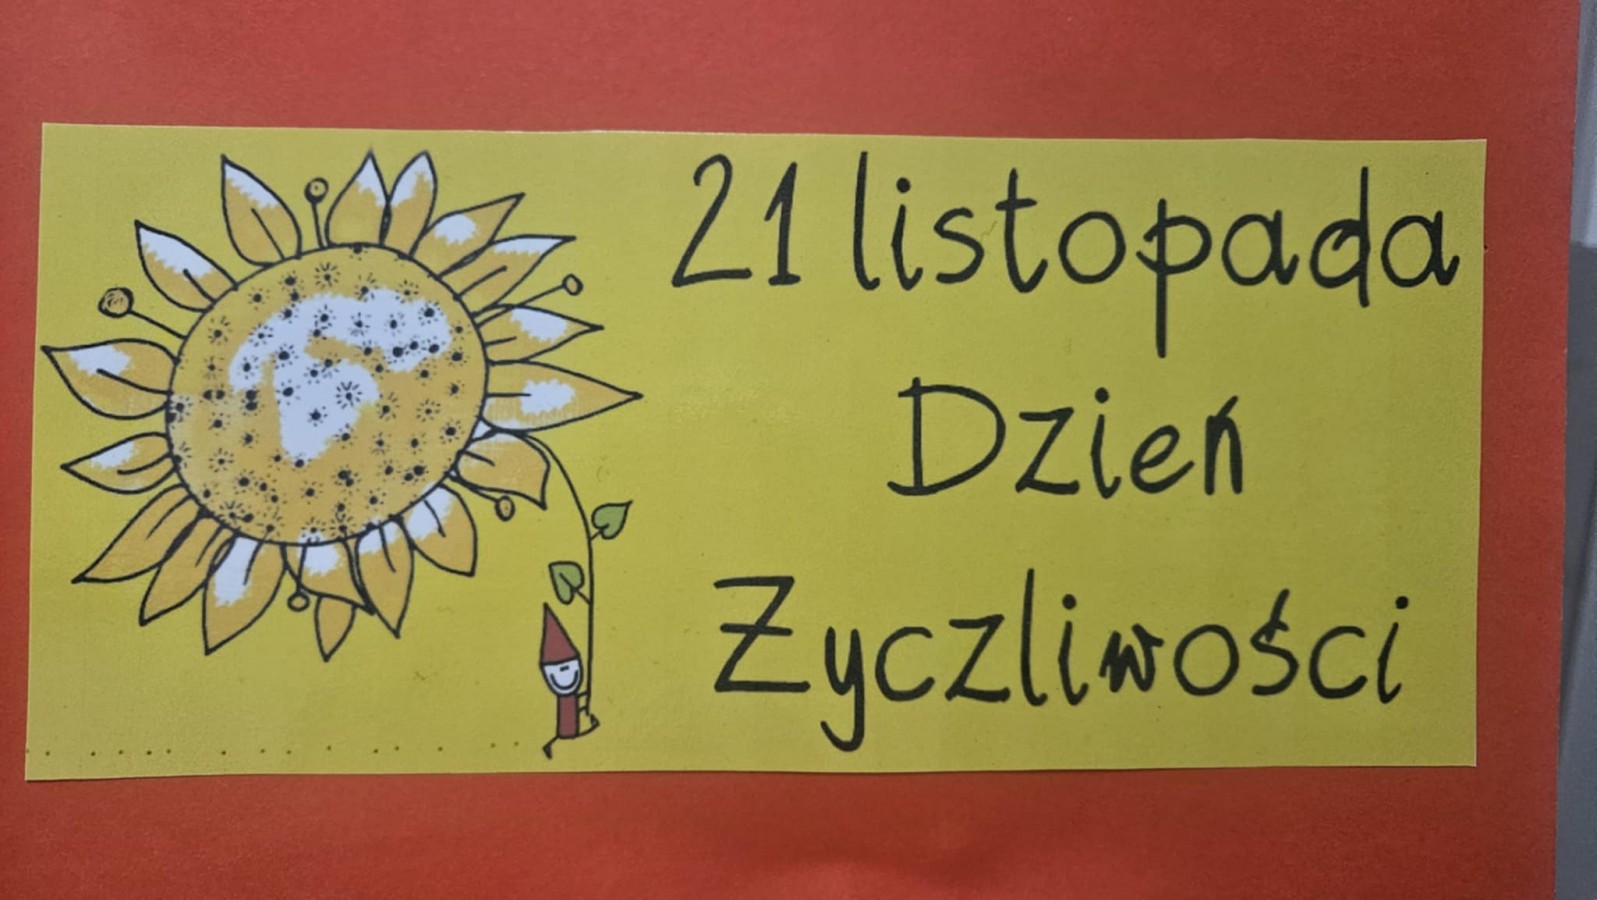 21 listopada
Dzień
Życzliwości